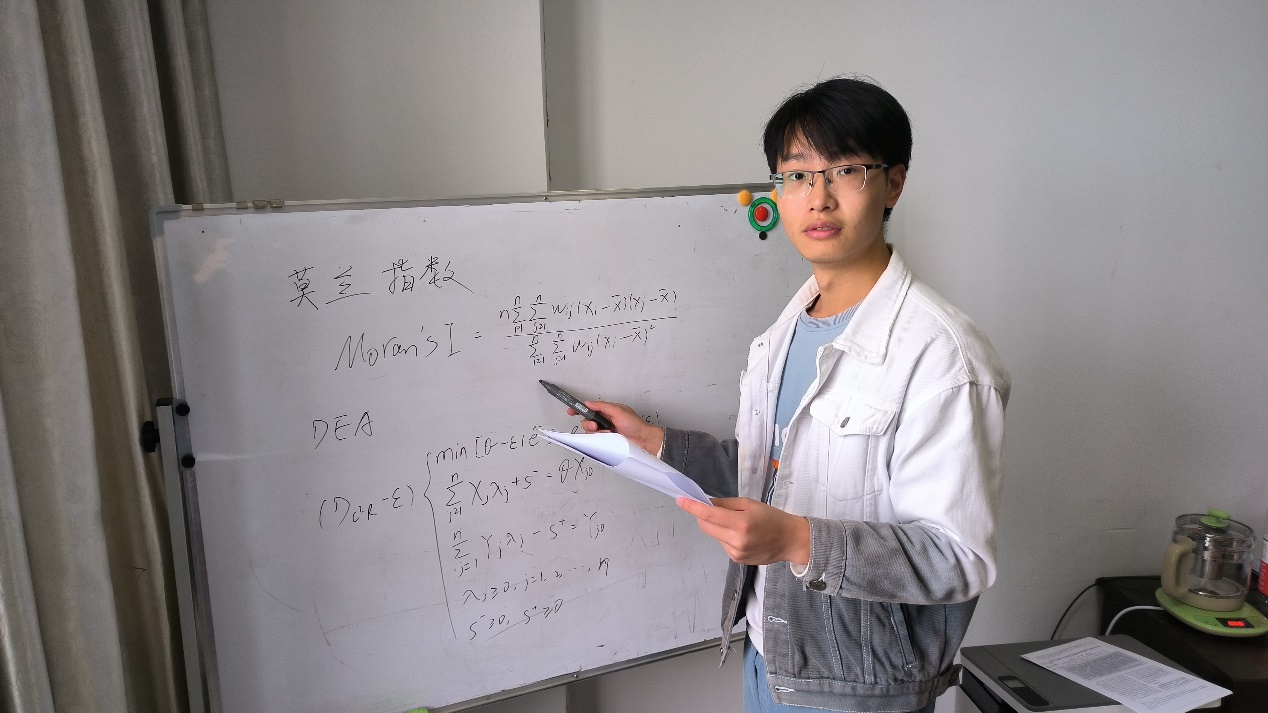 莫兰指数
Moran's I = n∑ⁿᵢ₌₁∑ⁿⱼ₌₁ wᵢⱼ(xᵢ - x̄)(xⱼ - x̄) / ∑ⁿᵢ₌₁∑ⁿⱼ₌₁ wᵢⱼ(xᵢ - x̄)²
DEA
min [θ - ε(e
(D_C²R - ε)
∑ⁿⱼ₌₁ Xⱼλⱼ + s⁻ = θXⱼ₀
∑ⁿⱼ₌₁ Yⱼλⱼ - s⁺ = Yⱼ₀
λⱼ ≥ 0, j = 1, 2, ⋯, n
s⁻ ≥ 0, s⁺ ≥ 0